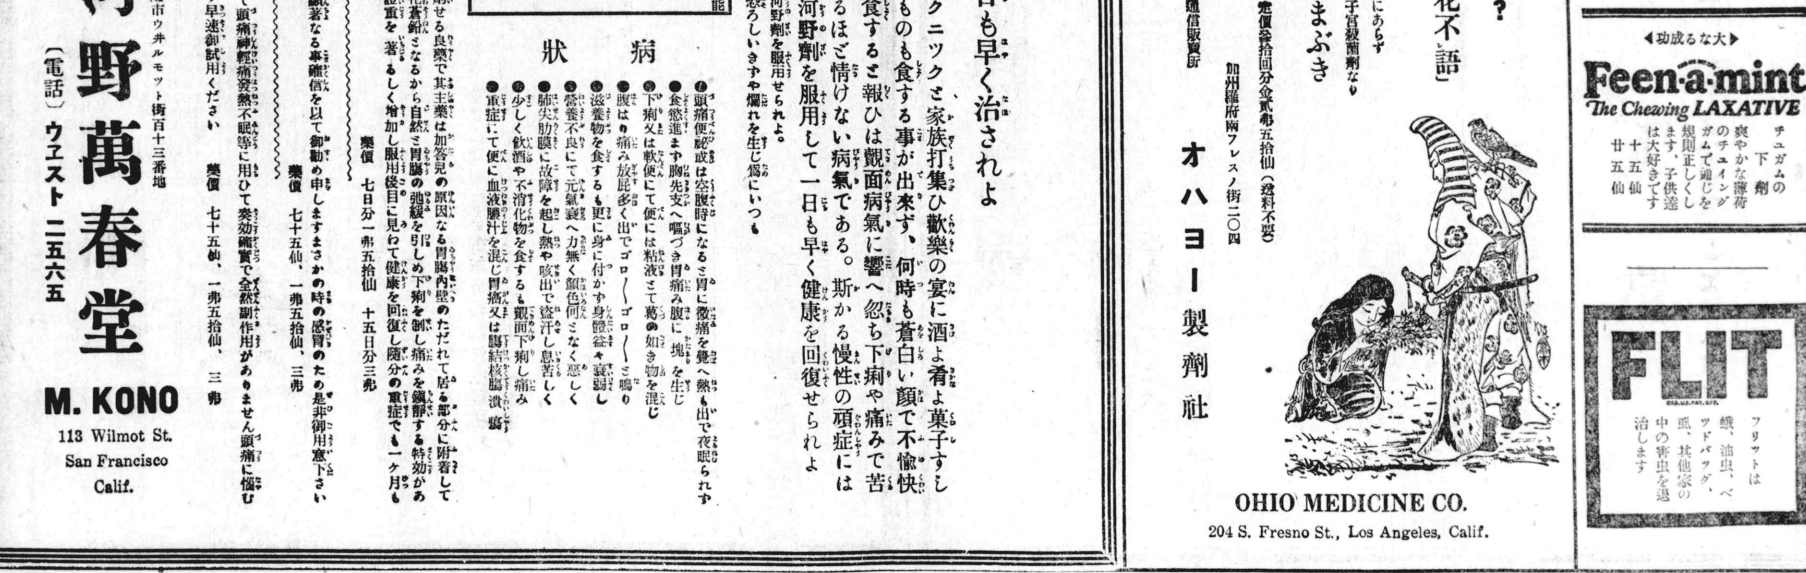 ◀大なる成功▶
Feen-a-mint
The Chewing LAXATIVE
チユガムの
下劑
爽やかな薄荷
のチユイング
ガムで通じを
規則正しくし
ます、子供達
は大好きです
十五仙
廿五仙
FLIT
REG. U.S. PAT. OFF.
フリツトは
蛾、油虫、ベ
ツドバツグ、
虱、其他家の
中の害虫を退
治します
？
花不語
にあらず
子宮殺菌劑なり
まぶき
定價參拾回分金貳弗五拾仙（送料不要）
加州羅府南フレスノ街二〇四
通信販賣所
オハヨー製劑社
OHIO MEDICINE CO.
204 S. Fresno St., Los Angeles, Calif.
も早く治されよ
クニツクと家族打集ひ歡樂の宴に酒よ肴よ菓子すし
ものも食する事が出來ず、何時も蒼白い顏で不愉快
食すると報ひは覿面病氣に響へ忽ち下痢や痛みで苦
るほど情けない病氣である。斯かる慢性の頑症には
河野劑を服用して一日も早く健康を回復せられよ
河野劑を服用せられよ。
恐ろしいきずや爛れを生じ爲にいつも
病狀
●頭痛便祕或は空腹時になると胃に微痛を覺へ熱も出で夜眠られず
●食慾進まず胸先支へ嘔づき胃痛み腹に塊を生じ
●下痢又は軟便にて便には粘液とて葛の如き物を混じ
●腹はり痛み放屁多く出でゴロ〳〵ゴロ〳〵と鳴り
●滋養物を食するも更に身に付かず身體益々衰弱し
●營養不良にて元氣衰へ力無く顏色何となく惡しく
●肺尖肋膜に故障を起し熱や咳出で盜汗し息苦しく
●少しく飮酒や不消化物を食するも覿面下痢し痛み
●重症にて便に血液膿汁を混じ胃癌又は腸結核腸潰瘍
せる良藥で其主藥は加答兒の原因なる胃腸內壁のただれて居る部分に附着して
蒼鉛となるから自然と胃腸の弛緩を引しめ下痢を制し痛みを鎭靜する特効があ
體重を著るしく增加し服用後目に見わて健康を回復し隨分の重症でも一ヶ月も
藥價　七日分一弗五拾仙　十五日分三弗
顯著なる事確信を以て御勸め申しますまさかの時の感冒のため是非御用意下さい
藥價　七十五仙、一弗五拾仙、三弗
て頭痛神經痛發熱不眠等に用ひて奏効確實で全然副作用がありません頭痛に惱む
早速御試用ください
藥價　七十五仙、一弗五拾仙、三弗
市ウ井ルモツト街百十三番地
河野萬春堂
（電話）ウヱスト二五六五
M. KONO
113 Wilmot St.
San Francisco
Calif.